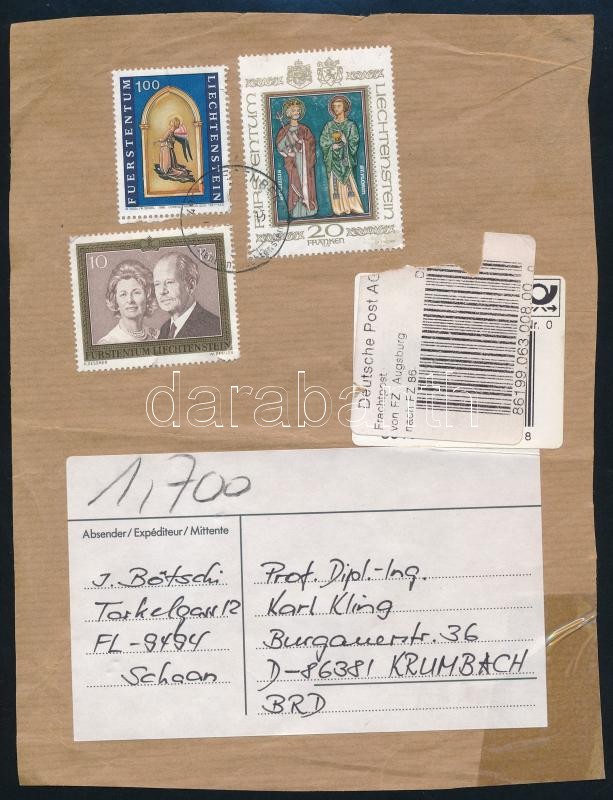 1.00
FUERSTENTUM
LIECHTENSTEIN
FÜRSTENTUM
LIECHTENSTEIN
20
FRANKEN
10
FÜRSTENTUM LIECHTENSTEIN
Deutsche Post AG
Frachtpost
von FZ Augsburg
nach FZ 86
86199.063.008.00
Nr. 0
8
darabanth
1,700
Absender/Expéditeur/Mittente
J. Bötschi
Torkelgass 12
FL-9494
Schaan
Prof. Dipl.-Ing.
Karl Kling
Burgauerstr. 36
D-86381 KRUMBACH
BRD